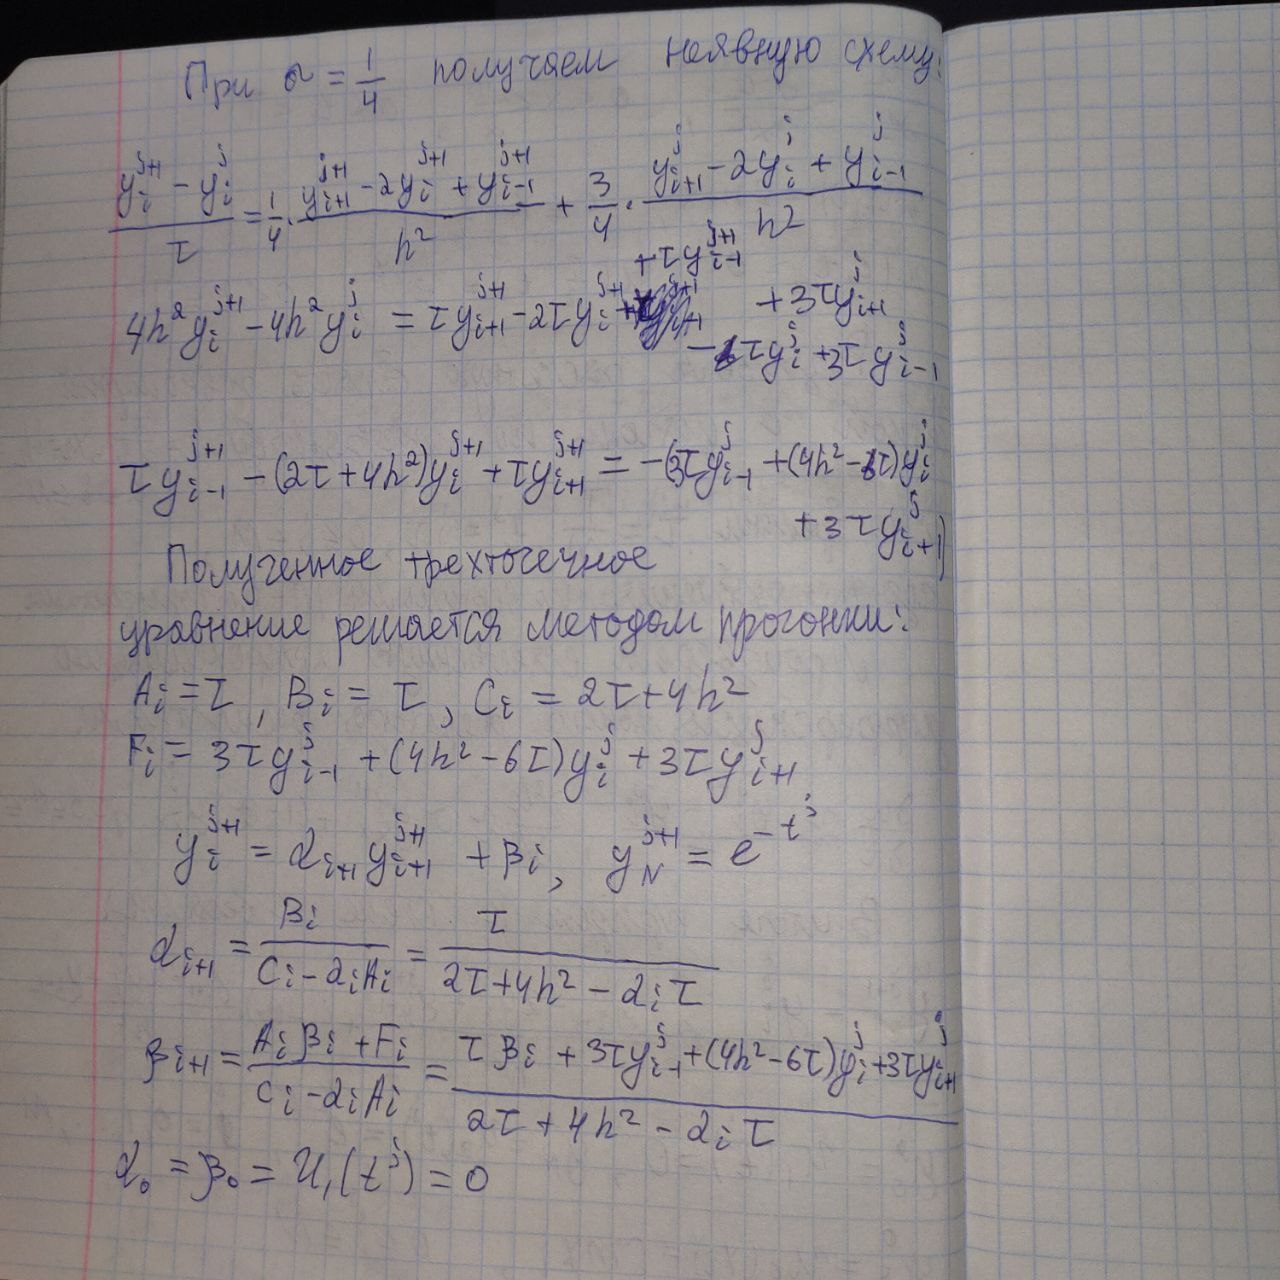 При σ = 1/4 получаем неявную схему:
(y_i^{j+1} - y_i^j)/τ = 1/4 · (y_{i+1}^{j+1} - 2y_i^{j+1} + y_{i-1}^{j+1})/h^2 + 3/4 · (y_{i+1}^j - 2y_i^j + y_{i-1}^j)/h^2
4h^2 y_i^{j+1} - 4h^2 y_i^j = τy_{i+1}^{j+1} - 2τy_i^{j+1} + τy_{i-1}^{j+1} + 3τy_{i+1}^j
- 6τy_i^j + 3τy_{i-1}^j
τy_{i-1}^{j+1} - (2τ+4h^2)y_i^{j+1} + τy_{i+1}^{j+1} = -(3τy_{i-1}^j + (4h^2-6τ)y_i^j
+ 3τy_{i+1}^j)
Полученное трехточечное
уравнение решается методом прогонки:
A_i = τ, B_i = τ, C_i = 2τ+4h^2
F_i = 3τy_{i-1}^j + (4h^2-6τ)y_i^j + 3τy_{i+1}^j
y_i^{j+1} = α_{i+1} y_{i+1}^{j+1} + β_i, y_N^{j+1} = e^{-t^j}
α_{i+1} = B_i/(C_i - α_i A_i) = τ/(2τ+4h^2 - α_i τ)
β_{i+1} = (A_i β_i + F_i)/(C_i - α_i A_i) = (τβ_i + 3τy_{i-1}^j + (4h^2-6τ)y_i^j + 3τy_{i+1}^j)/(2τ+4h^2 - α_i τ)
α_0 = β_0 = U_1(t^j) = 0